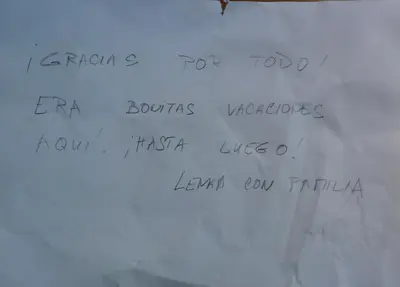 ¡GRACIAS POR TODO!
ERA BONITAS VACACIONES
AQUI! ¡HASTA LUEGO!
LENKA CON FAMILIA